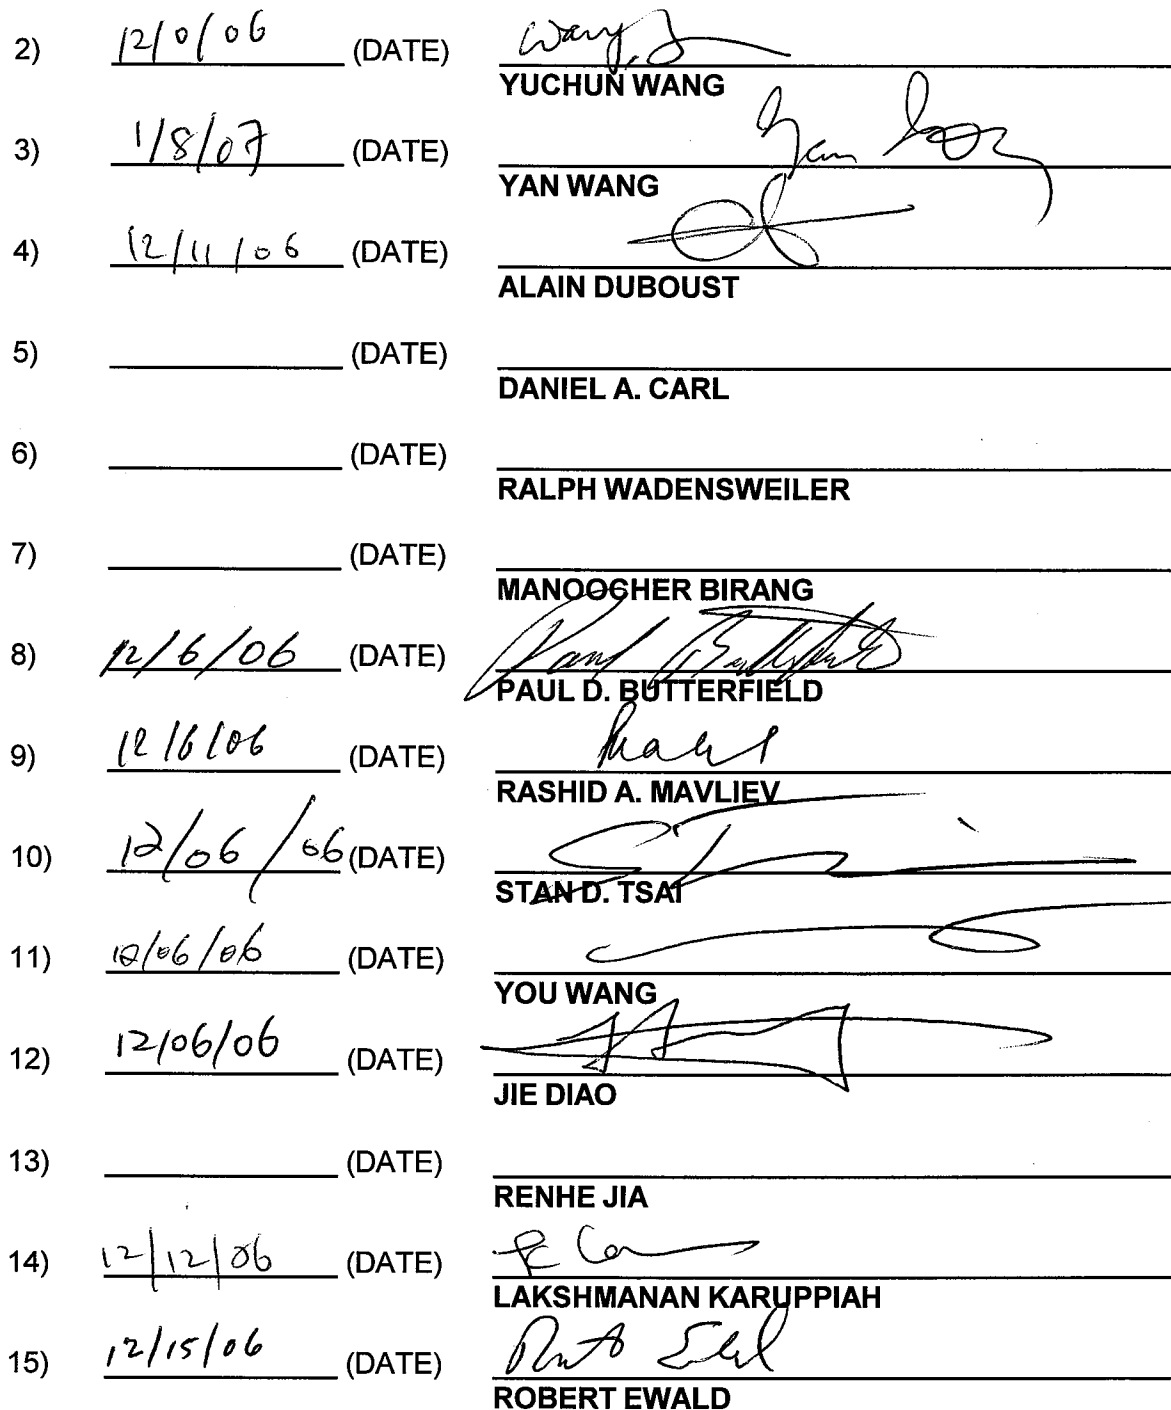 2) 12/0/06 (DATE) Wang, 
YUCHUN WANG
3) 1/8/07 (DATE) Yan
YAN WANG
4) 12/11/06 (DATE)
ALAIN DUBOUST
5) (DATE)
DANIEL A. CARL
6) (DATE)
RALPH WADENSWEILER
7) (DATE)
MANOOCHER BIRANG
8) 12/6/06 (DATE) Paul Butterfield
PAUL D. BUTTERFIELD
9) 12/6/06 (DATE)
RASHID A. MAVLIEV
10) 12/06/06 (DATE)
STAN D. TSAI
11) 12/06/06 (DATE)
YOU WANG
12) 12/06/06 (DATE)
JIE DIAO
13) (DATE)
RENHE JIA
14) 12/12/06 (DATE)
LAKSHMANAN KARUPPIAH
15) 12/15/06 (DATE)
ROBERT EWALD